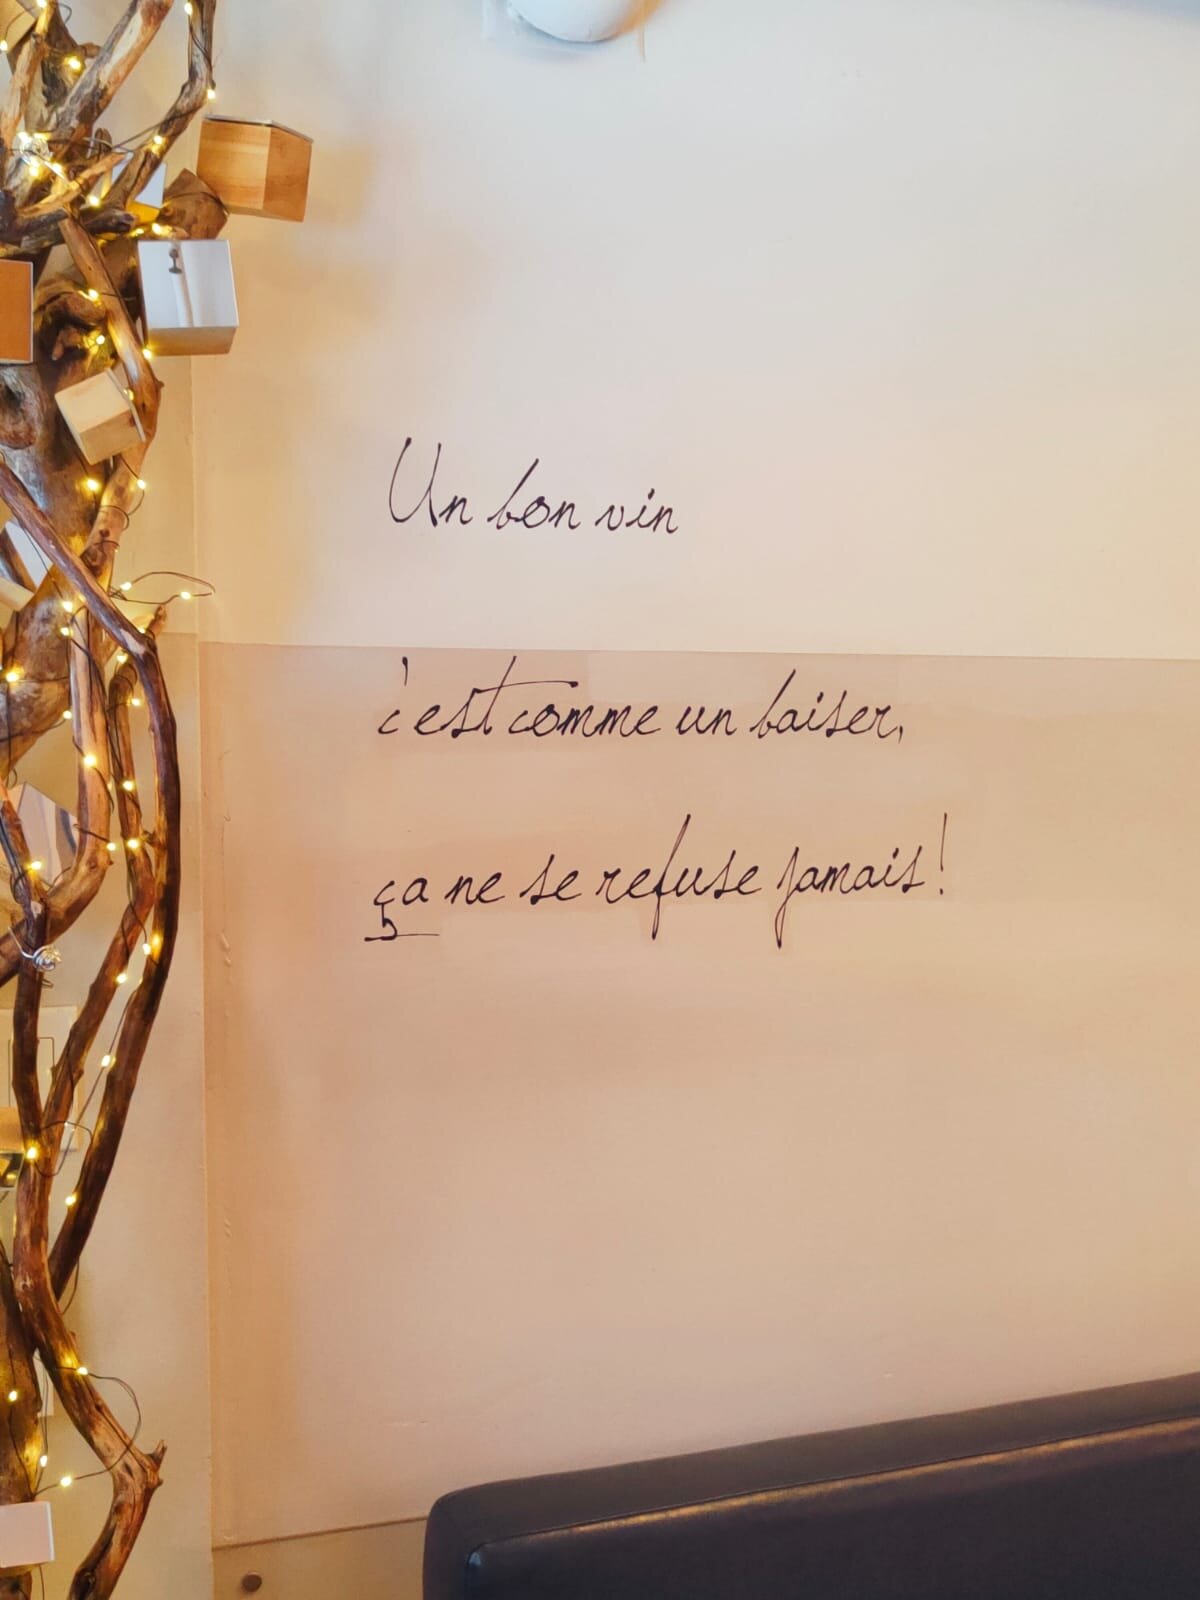 Un bon vin
c'est comme un baiser,
ça ne se refuse jamais!